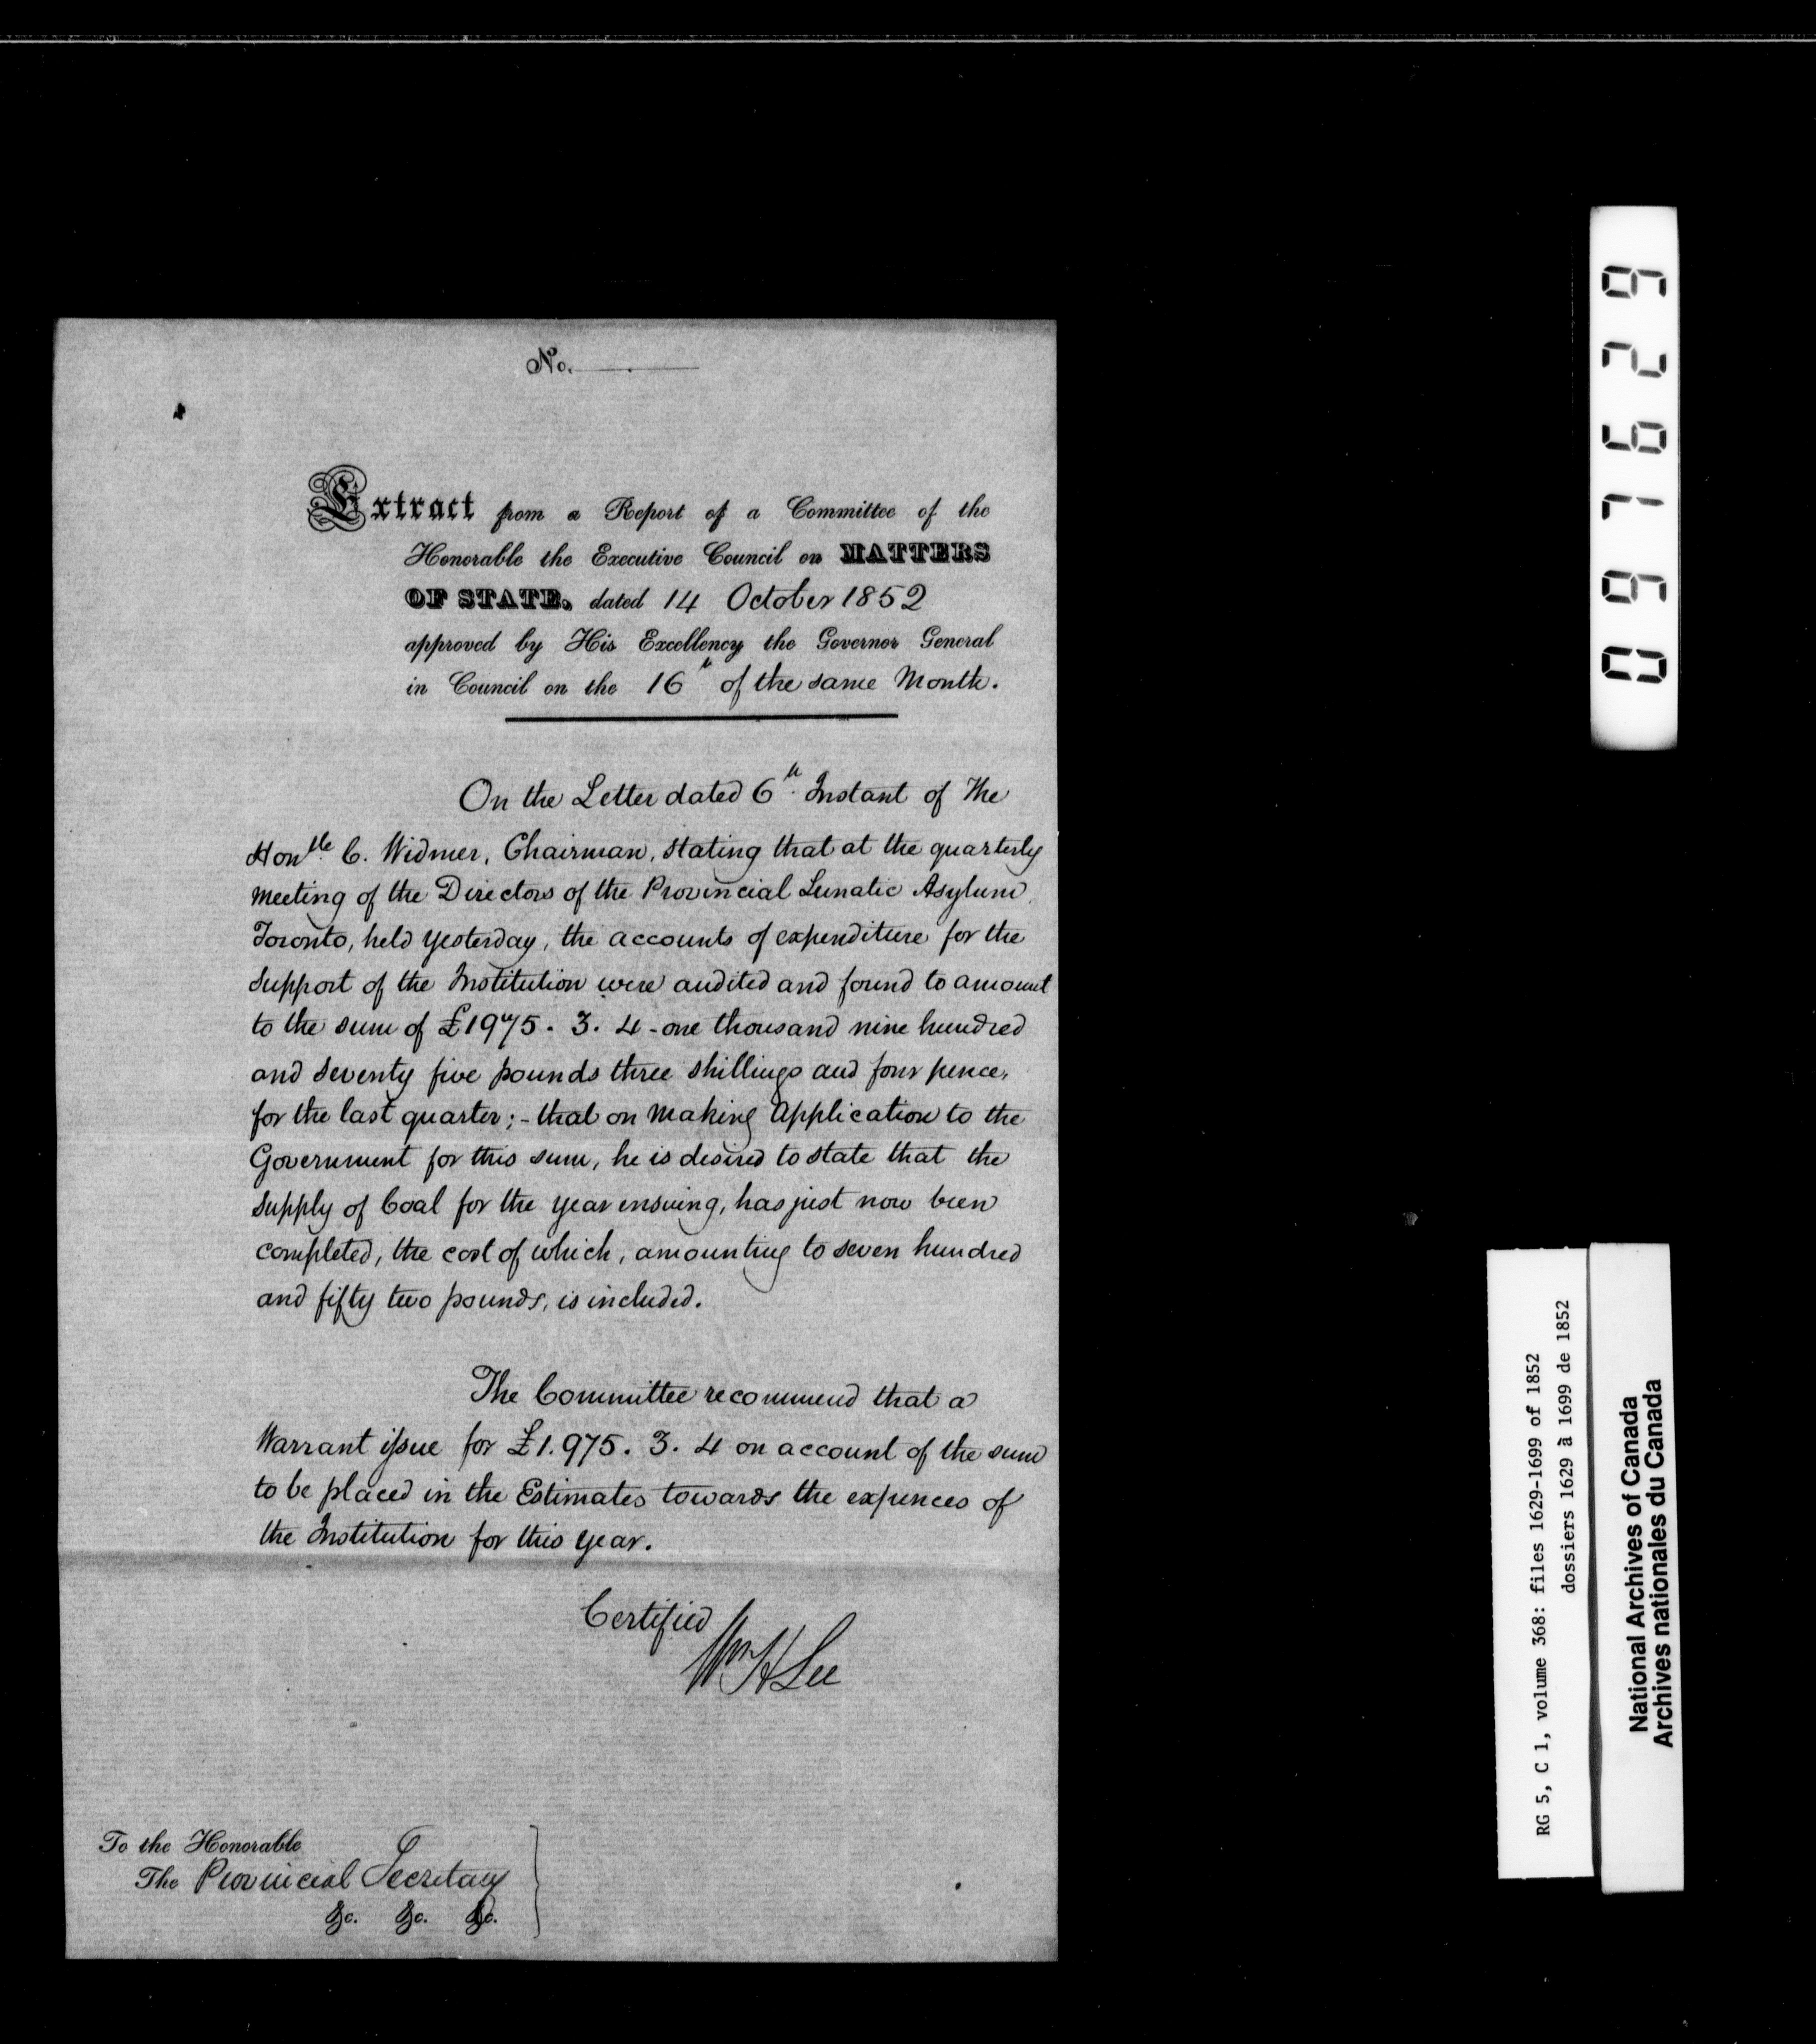 No.
Extract from a Report of a Committee of the
Honorable the Executive Council on MATTERS
OF STATE, dated 14 October 1852
approved by His Excellency the Governor General
in Council on the 16th of the same Month.
On the Letter dated 6th Instant of The
Honble C. Widmer, Chairman, stating that at the quarterly
meeting of the Directors of the Provincial Lunatic Asylum
Toronto, held yesterday, the accounts of expenditure for the
support of the Institution were audited and found to amount
to the sum of £1975. 3. 4 - one thousand nine hundred
and seventy five pounds three shillings and four pence,
for the last quarter; - that on making Application to the
Government for this sum, he is desired to state that the
supply of Coal for the year ensuing, has just now been
completed, the cost of which, amounting to seven hundred
and fifty two pounds, is included.
The Committee recommend that a
Warrant issue for £1.975. 3. 4 on account of the sum
to be placed in the Estimates towards the expences of
the Institution for this year.
Certified
Wm H Lee
To the Honorable
The Provincial Secretary
&c. &c. &c.
097629
RG 5, C 1, volume 368: files 1629-1699 of 1852
dossiers 1629 à 1699 de 1852
National Archives of Canada
Archives nationales du Canada